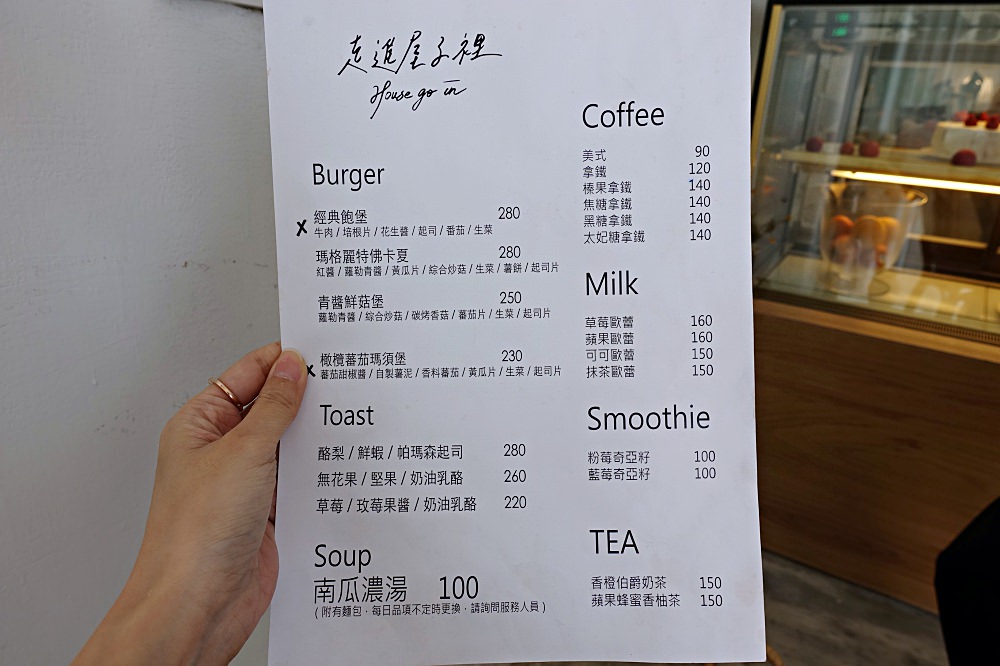 走進屋子裡
House go in
Burger
X 經典飽堡 280
牛肉 / 培根片 / 花生醬 / 起司 / 番茄 / 生菜
瑪格麗特佛卡夏 280
紅醬 / 蘿勒青醬 / 黃瓜片 / 綜合炒菇 / 生菜 / 薯餅 / 起司片
青醬鮮菇堡 250
蘿勒青醬 / 綜合炒菇 / 碳烤香菇 / 蕃茄片 / 生菜 / 起司片
X 橄欖蕃茄瑪須堡 230
蕃茄甜椒醬 / 自製薯泥 / 香料蕃茄 / 黃瓜片 / 生菜 / 起司片
Toast
酪梨 / 鮮蝦 / 帕瑪森起司 280
無花果 / 堅果 / 奶油乳酪 260
草莓 / 玫莓果醬 / 奶油乳酪 220
Soup
南瓜濃湯 100
( 附有麵包 · 每日品項不定時更換 · 請詢問服務人員 )
Coffee
美式 90
拿鐵 120
榛果拿鐵 140
焦糖拿鐵 140
黑糖拿鐵 140
太妃糖拿鐵 140
Milk
草莓歐蕾 160
蘋果歐蕾 160
可可歐蕾 150
抹茶歐蕾 150
Smoothie
粉莓奇亞籽 100
藍莓奇亞籽 100
TEA
香橙伯爵奶茶 150
蘋果蜂蜜香柚茶 150